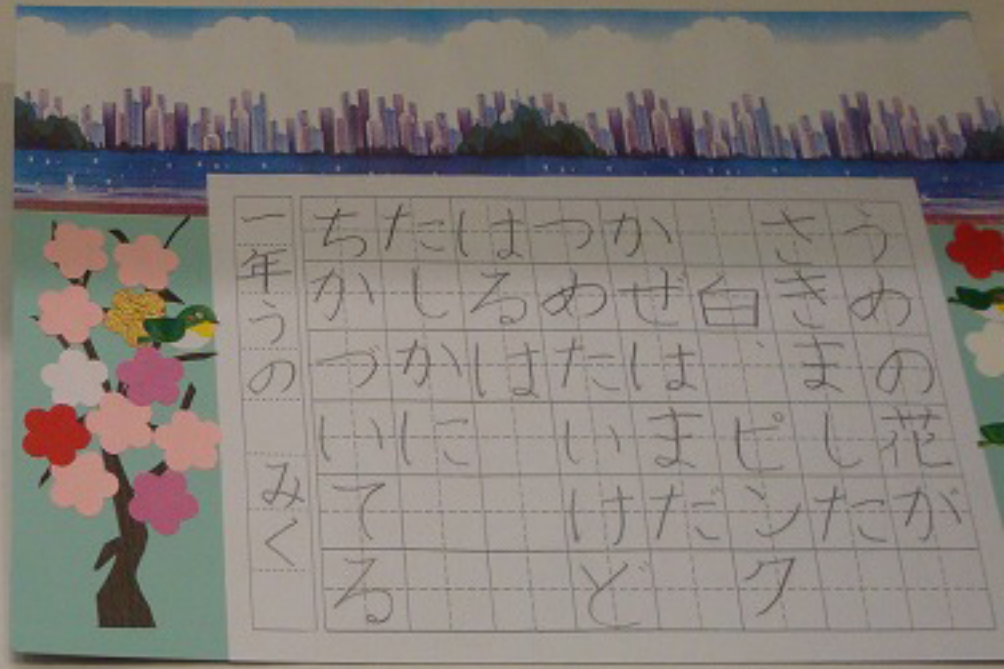 うめの花が
さきました
白、ピンク
かぜはまだ
つめたいけど
はるは
たしかに
ちかづいてる
一年うの みく